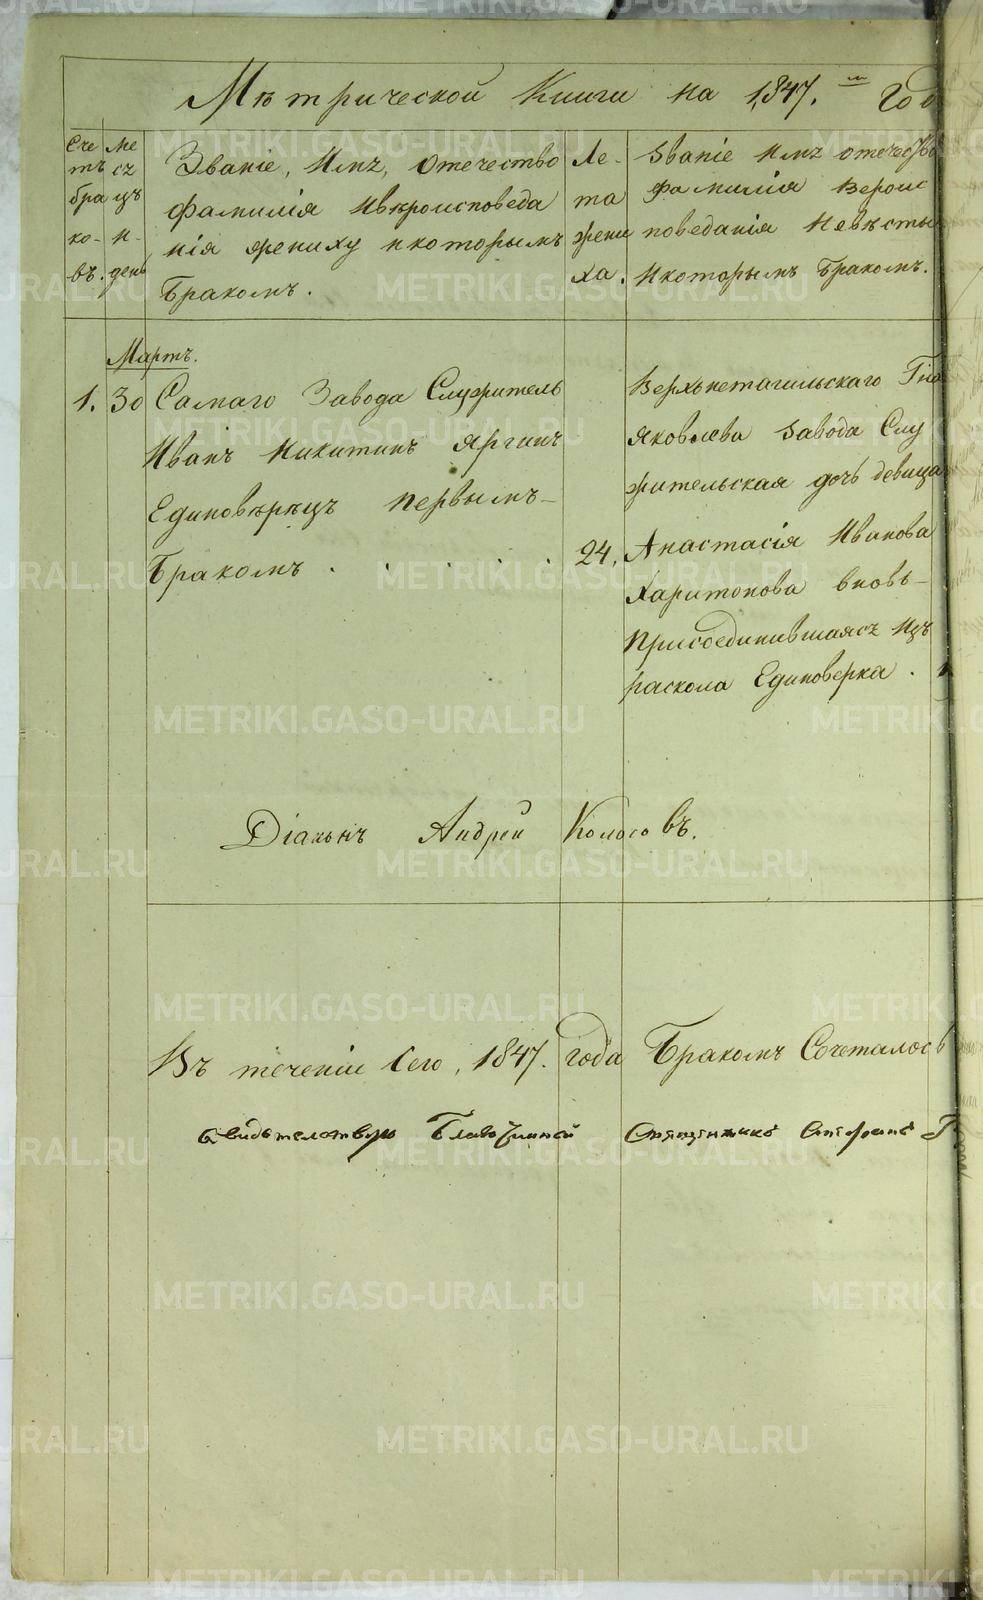 Метрической Книги на 1847.м Год
Сче Ме
тъ сz
бра цъ
ко- и-
въ. день
Званіе, Имz, отечество
фамиліа Ивѣроисповеда
нія жениху и которымъ
Бракомъ.
Ле-
та
жени
ха.
Званіе Имz отечество
фамилія Вероис
поведанія Невѣсты
И которымъ Бракомъ.
Мартъ.
1. 30 Самаго Завода Служитель
Иванъ Никитинъ Яргинъ
Единовѣрѣцъ первымъ-
Бракомъ . . . . . 24.
Верхънетагильскаго Гна
Яковлева Завода Слу
жительская дочь девица
Анастасія Иванова
Харитонова вновь-
Присоединившаясz изъ
раскола Единоверка .
Діаконъ Андрей Колосовъ.
Въ теченіи Сего, 1847. года Бракомъ Сочеталось
Свидетелствую Благочинной Священникъ Стефанъ
METRIKI.GASO-URAL.RU